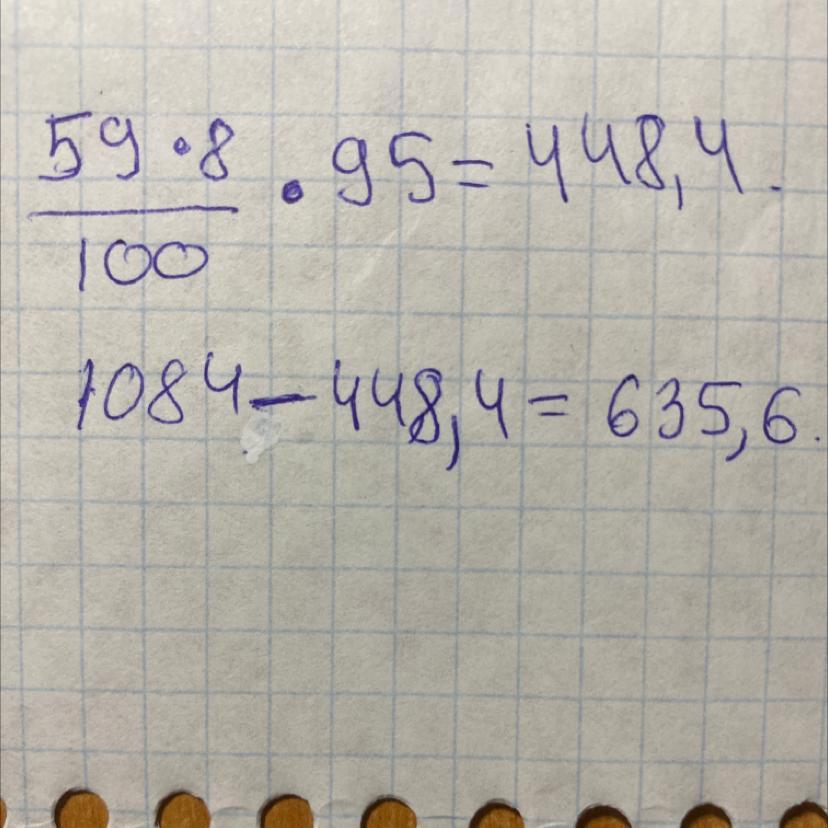 59·8/100 · 95 = 448,4.
1084 - 448,4 = 635,6.